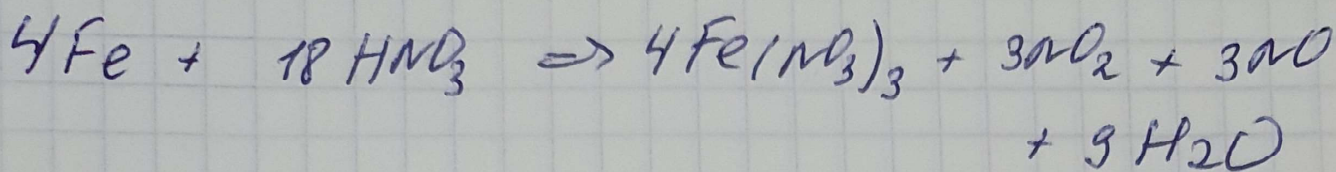 4Fe + 18 HNO₃ => 4Fe(NO₃)₃ + 3NO₂ + 3NO
+ 9 H₂O